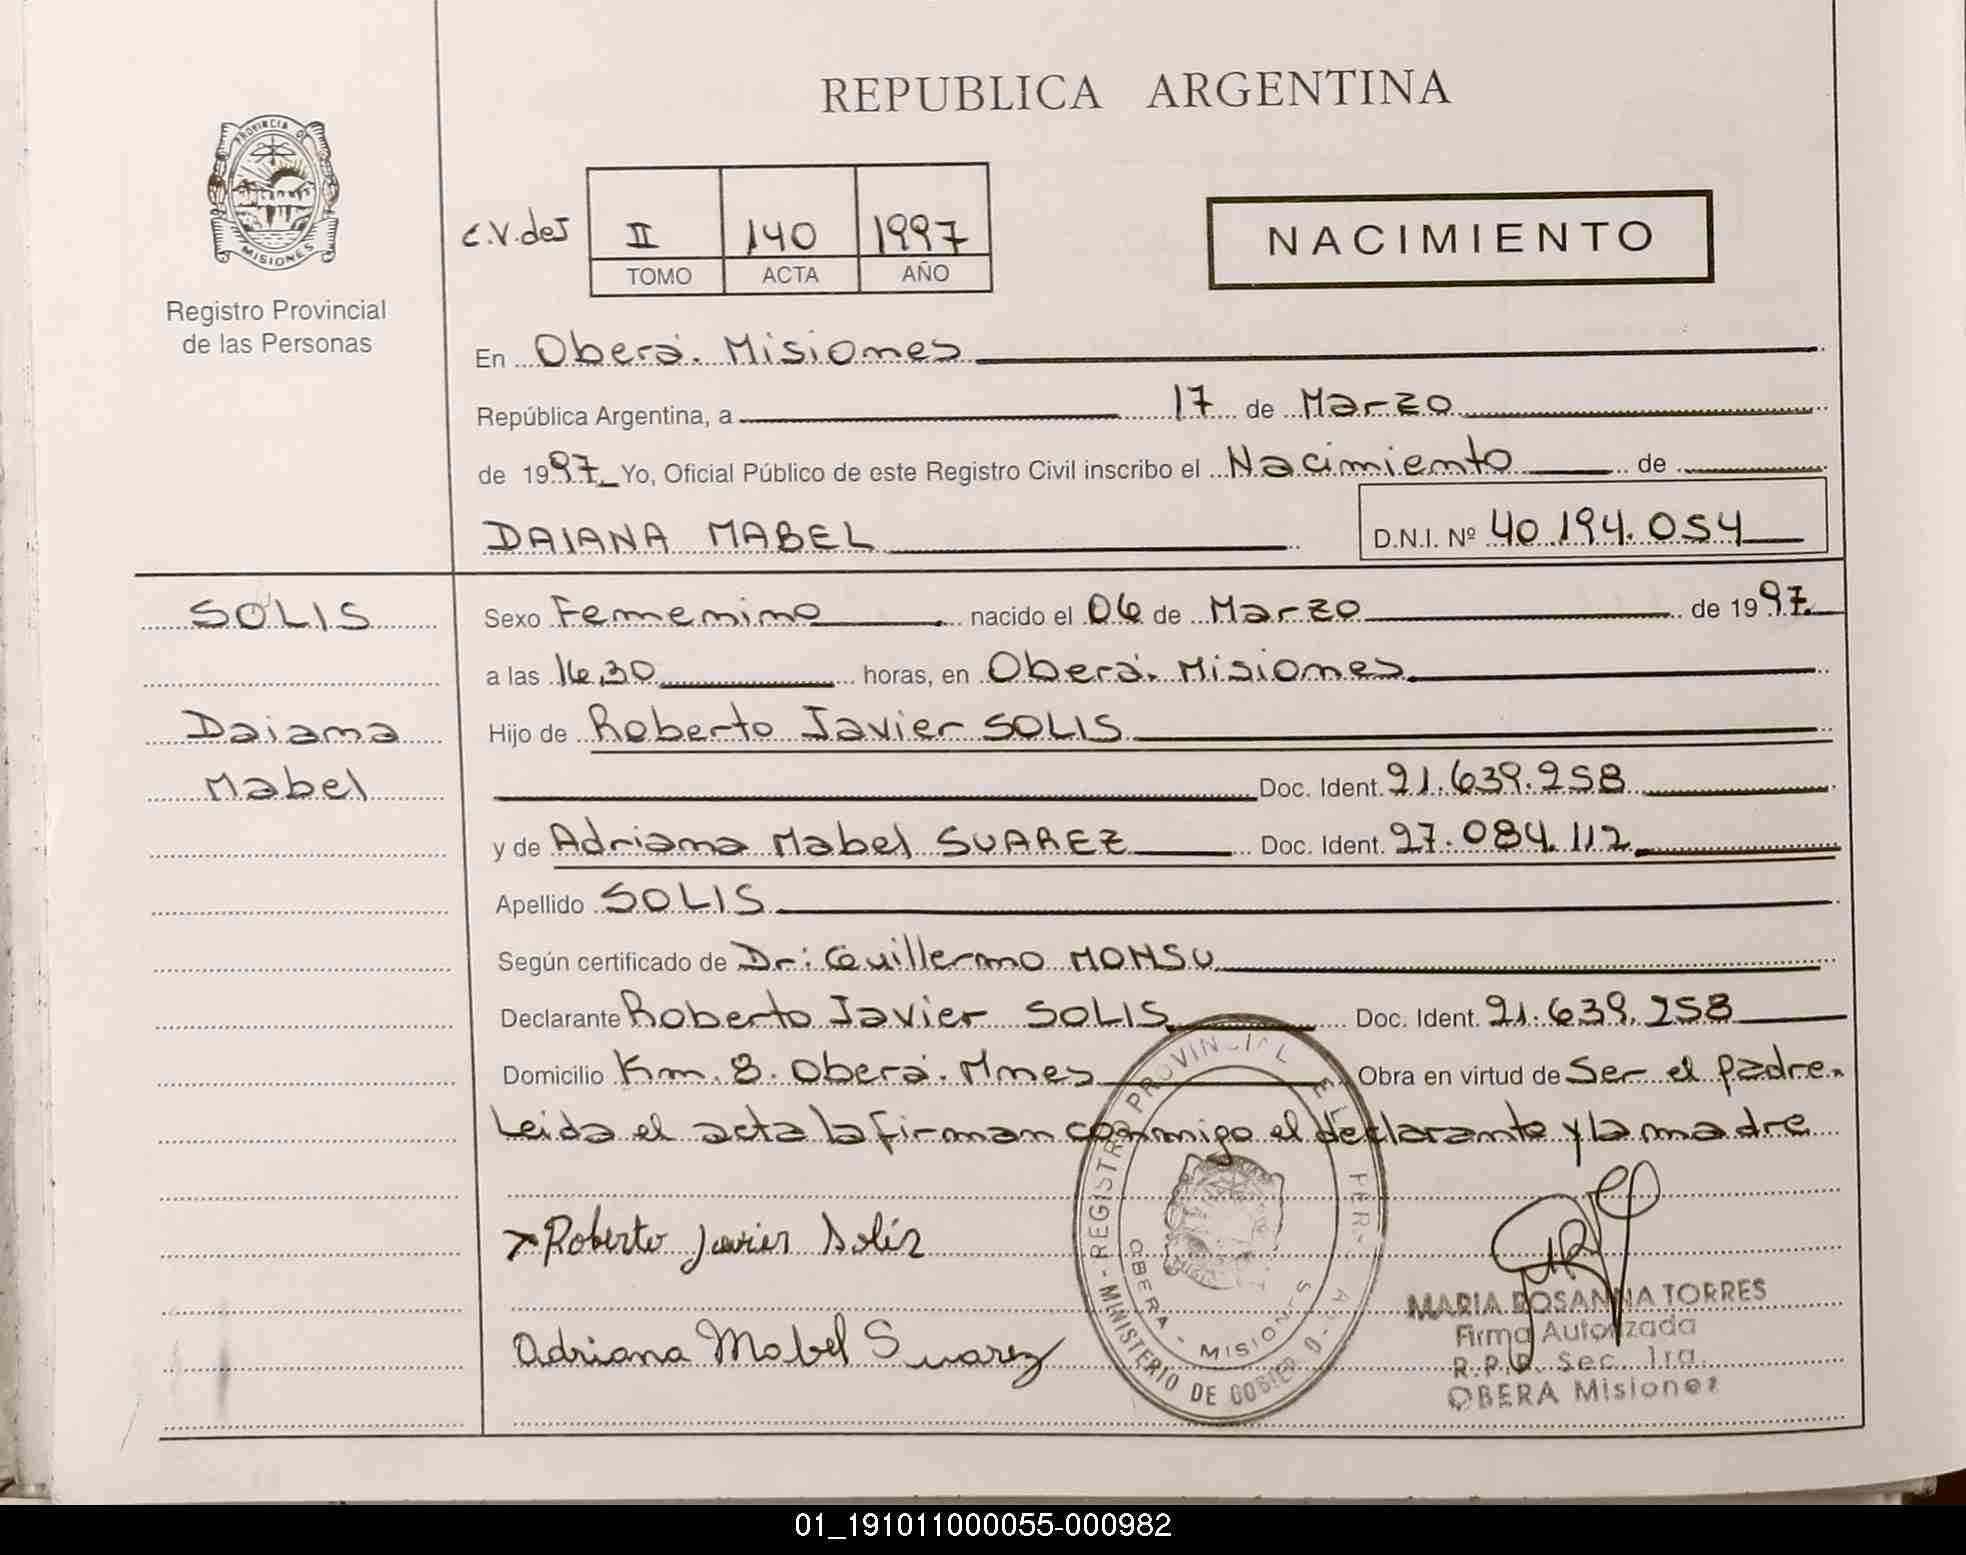 REPUBLICA ARGENTINA
PROVINCIA DE
MISIONES
Registro Provincial
de las Personas
C.V. de I
II 140 1997
TOMO ACTA AÑO
NACIMIENTO
En Oberá. Misiones
República Argentina, a 17 de Marzo
de 1997 Yo, Oficial Público de este Registro Civil inscribo el Nacimiento de
DAIANA MABEL D.N.I. Nº 40.194.054
SOLIS
Daiana
Mabel
Sexo Femenino nacido el 06 de Marzo de 1997.
a las 16,30 horas, en Oberá. Misiones
Hijo de Roberto Javier SOLIS
Doc. Ident. 21.639.258
y de Adriana Mabel SUAREZ Doc. Ident. 27.084.112
Apellido SOLIS
Según certificado de Dr: Guillermo MONSU
Declarante Roberto Javier SOLIS Doc. Ident. 21.639.258
Domicilio Km. 8. Oberá. Mnes Obra en virtud de Ser el padre.
Leida el acta la firman conmigo el declarante y la madre
Roberto Javier Solis
Adriana Mabel Suarez
REGISTRO PROVINCIAL
MINISTERIO DE
OBERA - MISIONES
MARIA ROSANNA TORRES
Firma Autorizada
R.P.P. Sec. 1ra.
OBERA Misiones
01_191011000055-000982